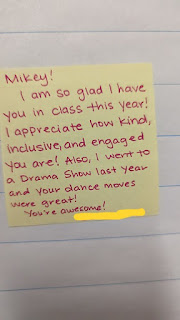 Mikey!
I am so glad I have
you in class this year!
I appreciate how kind,
inclusive, and engaged
you are! Also, I went to
a Drama Show last year
and your dance moves
were great!
You're awesome!